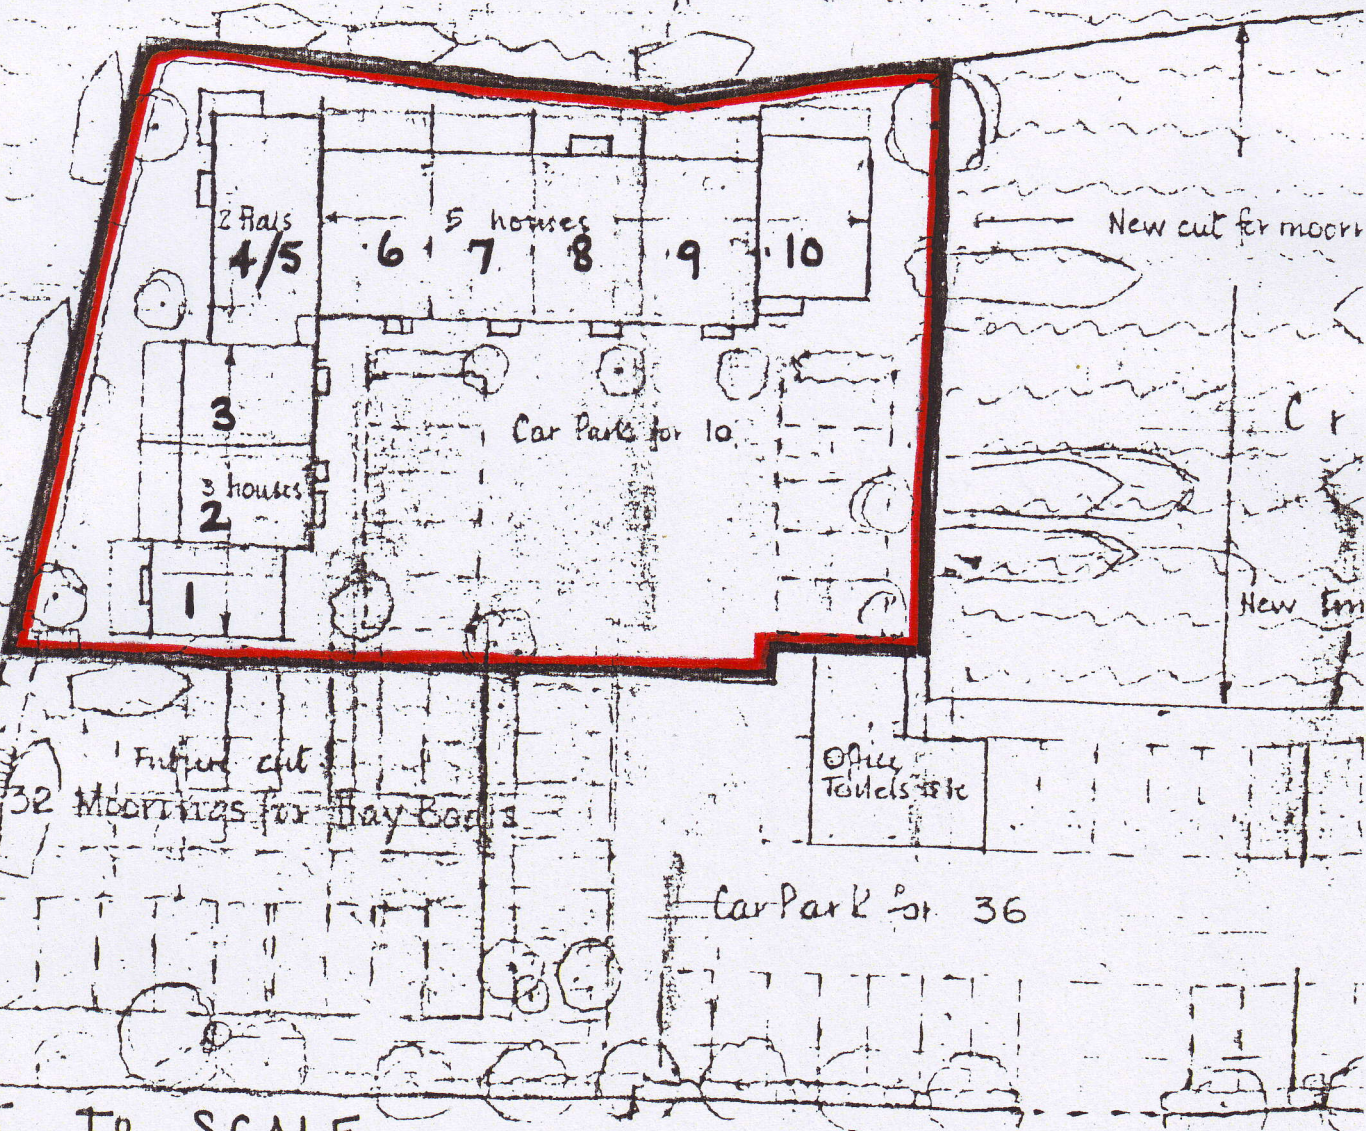 2 Flats
4/5
5 houses
6
7
8
9
10
New cut for moori
3
Car Park for 10
3 houses
2
1
C r
New Tim
Future cut
32 Moorings for Day Boats
Office
Toilets etc
Car Park for 36
TO SCALE